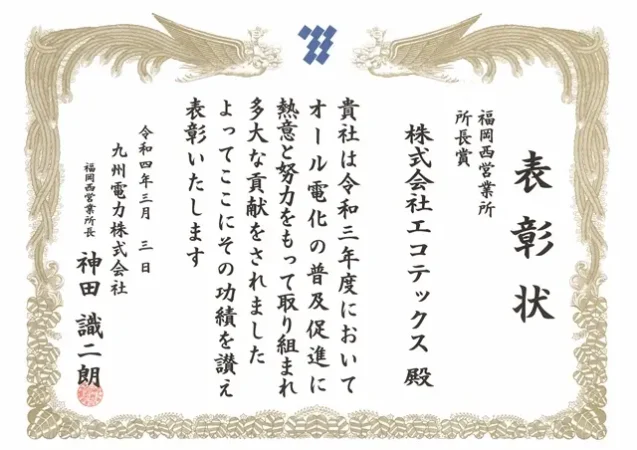 表彰状
福岡西営業所
所長賞
株式会社エコテックス 殿
貴社は令和三年度において
オール電化の普及促進に
熱意と努力をもって取り組まれ
多大な貢献をされました
よってここにその功績を讃え
表彰いたします
令和四年三月 三 日
九州電力株式会社
福岡西営業所長 神田 識二朗